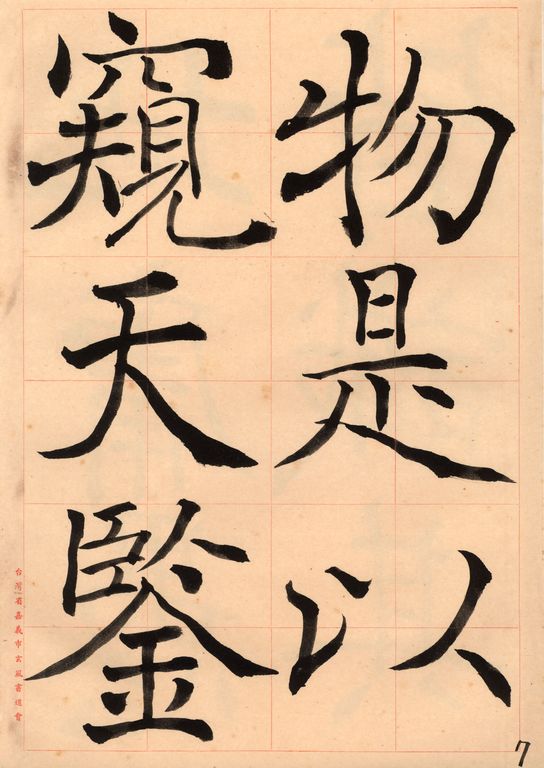 物是以
窺天鑒
台灣省嘉義市玄風書道會
7